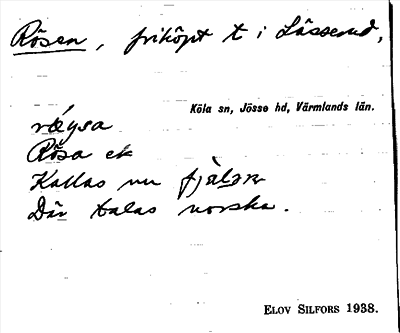 Rösen, friköpt t i Lässerud,
Köla sn, Jösse hd, Värmlands län.
rǿysa
Rösa ek
Kallas nu fjælən
Där talas norska.
ELOV SILFORS 1938.